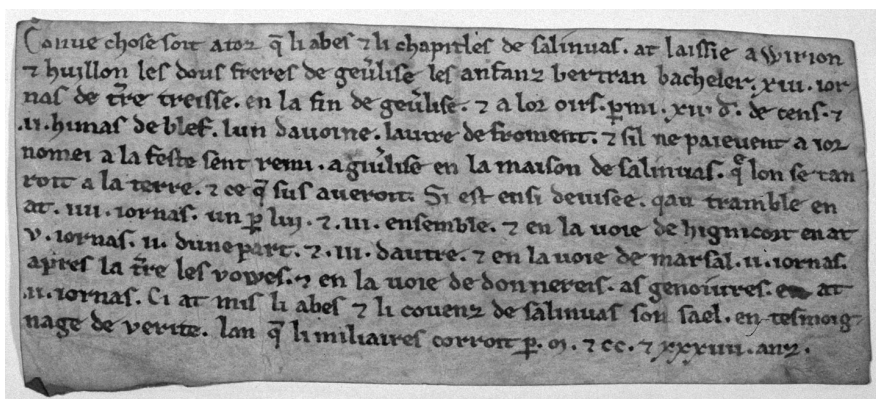 Conue chose soit a toz q̄ li abes ⁊ li chapitles de salinuas. at laissie a Wirion
⁊ huillon les dous freres de geũlise les anfanz bertran bacheler. xiii. ior
nas de t̄re treisse. en la fin de geũlise. ⁊ a lor oirs. ꝑmi. xii d̄. de cens. ⁊
.ii. himas de blef. lun dauoine. lautre de froment. ⁊ sil ne paieuent a ior
nomei a la feste sent remi. a giũlise en la maison de salinuas. q̄ lon se tan
roit a la terre. ⁊ ce q̄ sus aueroit. Si est ensi deuisee. qau tramble en
at. iiii. iornas. un ꝑ lui. ⁊. iii. ensemble. ⁊ en la uoie de hignicort en at
v. iornas. ii. dune part. ⁊. iii. dautre. ⁊ en la uoie de marsal. ii. iornas.
apres la t̄re les vowes. ⁊ en la uoie de donnereis. as genoiures. en at
.ii. iornas. Ci at mis li abes ⁊ li couenz de salinuas son sael. en tesmoig
nage de verite. lan q̄ li miliaires corroit ꝑ. m. ⁊ cc. ⁊ xxxiiii. anz.